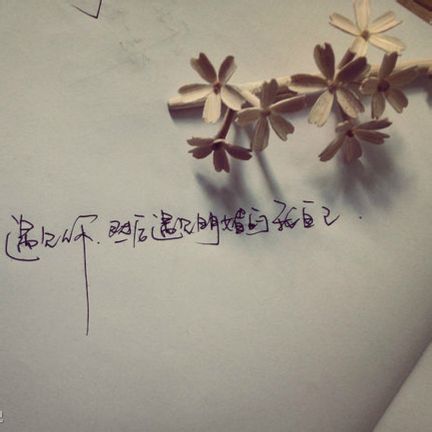 遇见你.然后遇见明媚的我自己.